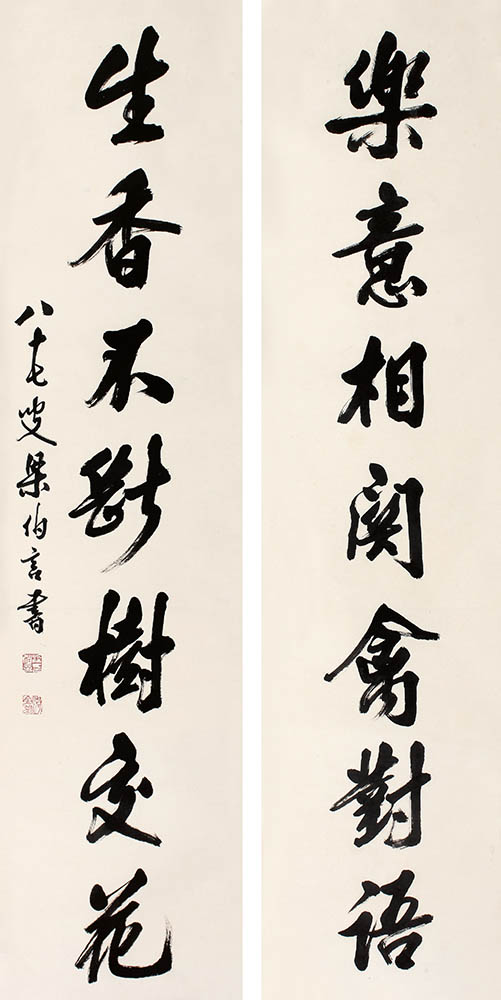 樂意相關禽對語
生香不斷樹交花
八十七叟梁伯言書